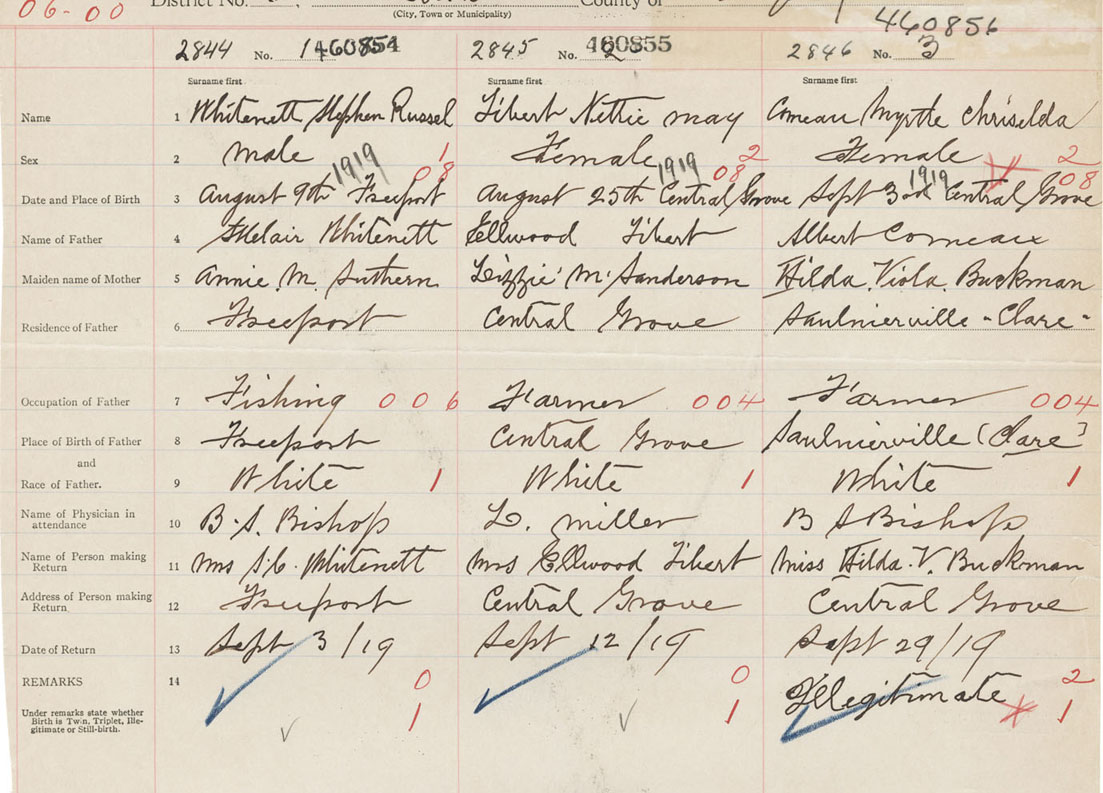 06-00 District No. County of
(City, Town or Municipality)
2844 No. 1 460854 2845 No. 2 460855 2846 No. 3 460856
Surname first Surname first Surname first
Name 1 Whitenett Stephen Russel Tibert Nettie may Comeau Myrtle Chriselda
Sex 2 male 1 Female 2 Female 2
1919 08 1919 08 1919 08
Date and Place of Birth 3 August 9th Freeport August 25th Central Grove Sept 3rd Central Grove
Name of Father 4 Whitenett Ellwood Tibert Albert Comeaux
Maiden name of Mother 5 Annie M. Suthern Lizzie M Sanderson Hilda Viola Buckman
Residence of Father 6 Freeport Central Grove Saulnierville "Clare"
Occupation of Father 7 Fishing 006 Farmer 004 Farmer 004
Place of Birth of Father 8 Freeport Central Grove Saulnierville (Clare)
and
Race of Father. 9 White 1 White 1 White 1
Name of Physician in
attendance 10 B. S. Bishop L. Miller B S Bishop
Name of Person making
Return 11 Mrs S. C. Whitenett Mrs Ellwood Tibert Miss Hilda. V. Buckman
Address of Person making
Return 12 Freeport Central Grove Central Grove
Date of Return 13 Sept 3/19 Sept 12/19 Sept 29/19
REMARKS 14 0 0 Illegitimate 2
Under remarks state whether
Birth is Twin, Triplet, Ille-
gitimate or Still-birth. 1 1 1